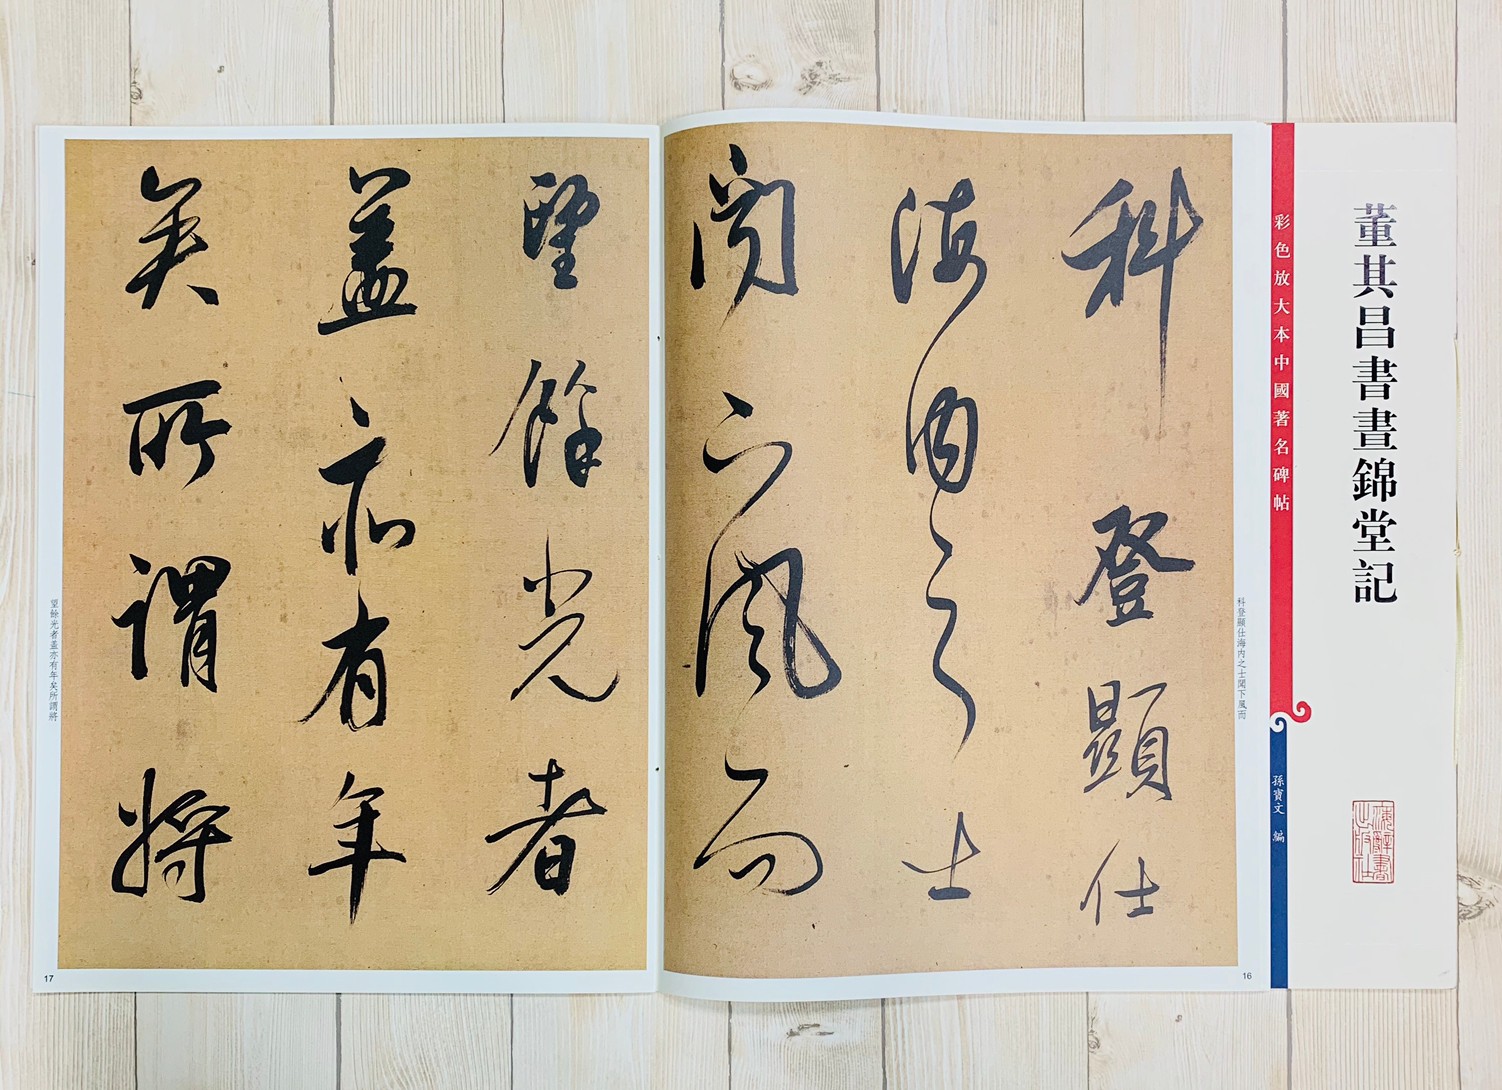 董其昌書晝錦堂記
彩色放大本中國著名碑帖
孫寶文 編
上海辭書出版社
科登顯仕
海内之士
聞下風而
科登顯仕海内之士聞下風而
16
望餘光者
蓋亦有年
矣所謂將
望餘光者蓋亦有年矣所謂將
17